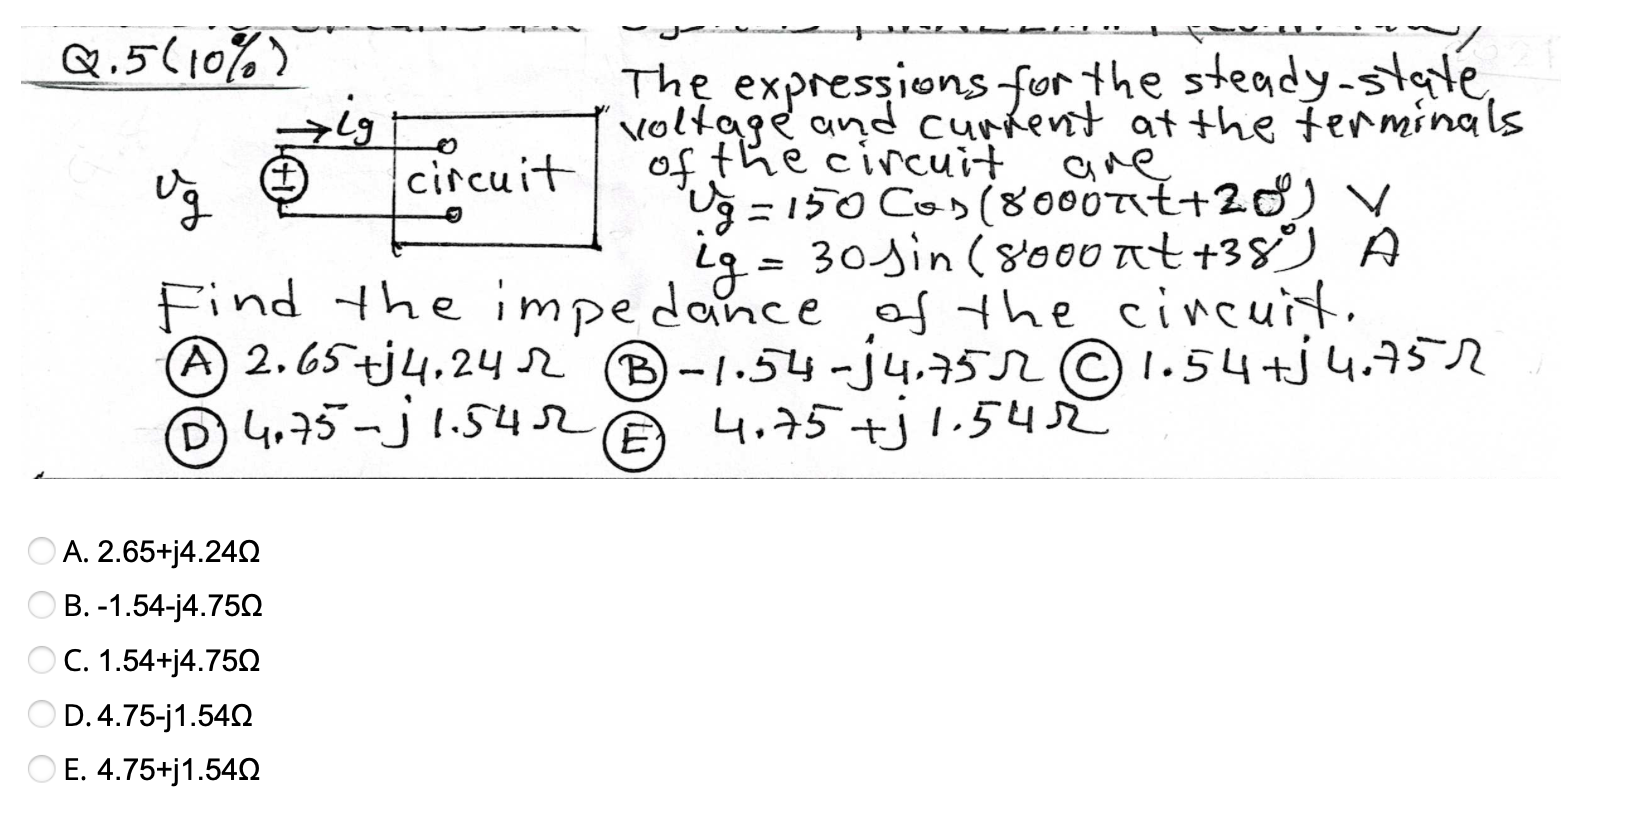 Q.5(10%)
The expressions for the steady-state
voltage and current at the terminals
of the circuit are
→ig
circuit
vg
+
−
vg = 150 Cos(8000πt+20°) V
ig = 30 sin(8000πt+38°) A
Find the impedance of the circuit.
Ⓐ 2.65+j4.24Ω Ⓑ -1.54-j4.75Ω Ⓒ 1.54+j4.75Ω
Ⓓ 4.75-j1.54Ω Ⓔ 4.75+j1.54Ω
A. 2.65+j4.24Ω
B. -1.54-j4.75Ω
C. 1.54+j4.75Ω
D. 4.75-j1.54Ω
E. 4.75+j1.54Ω